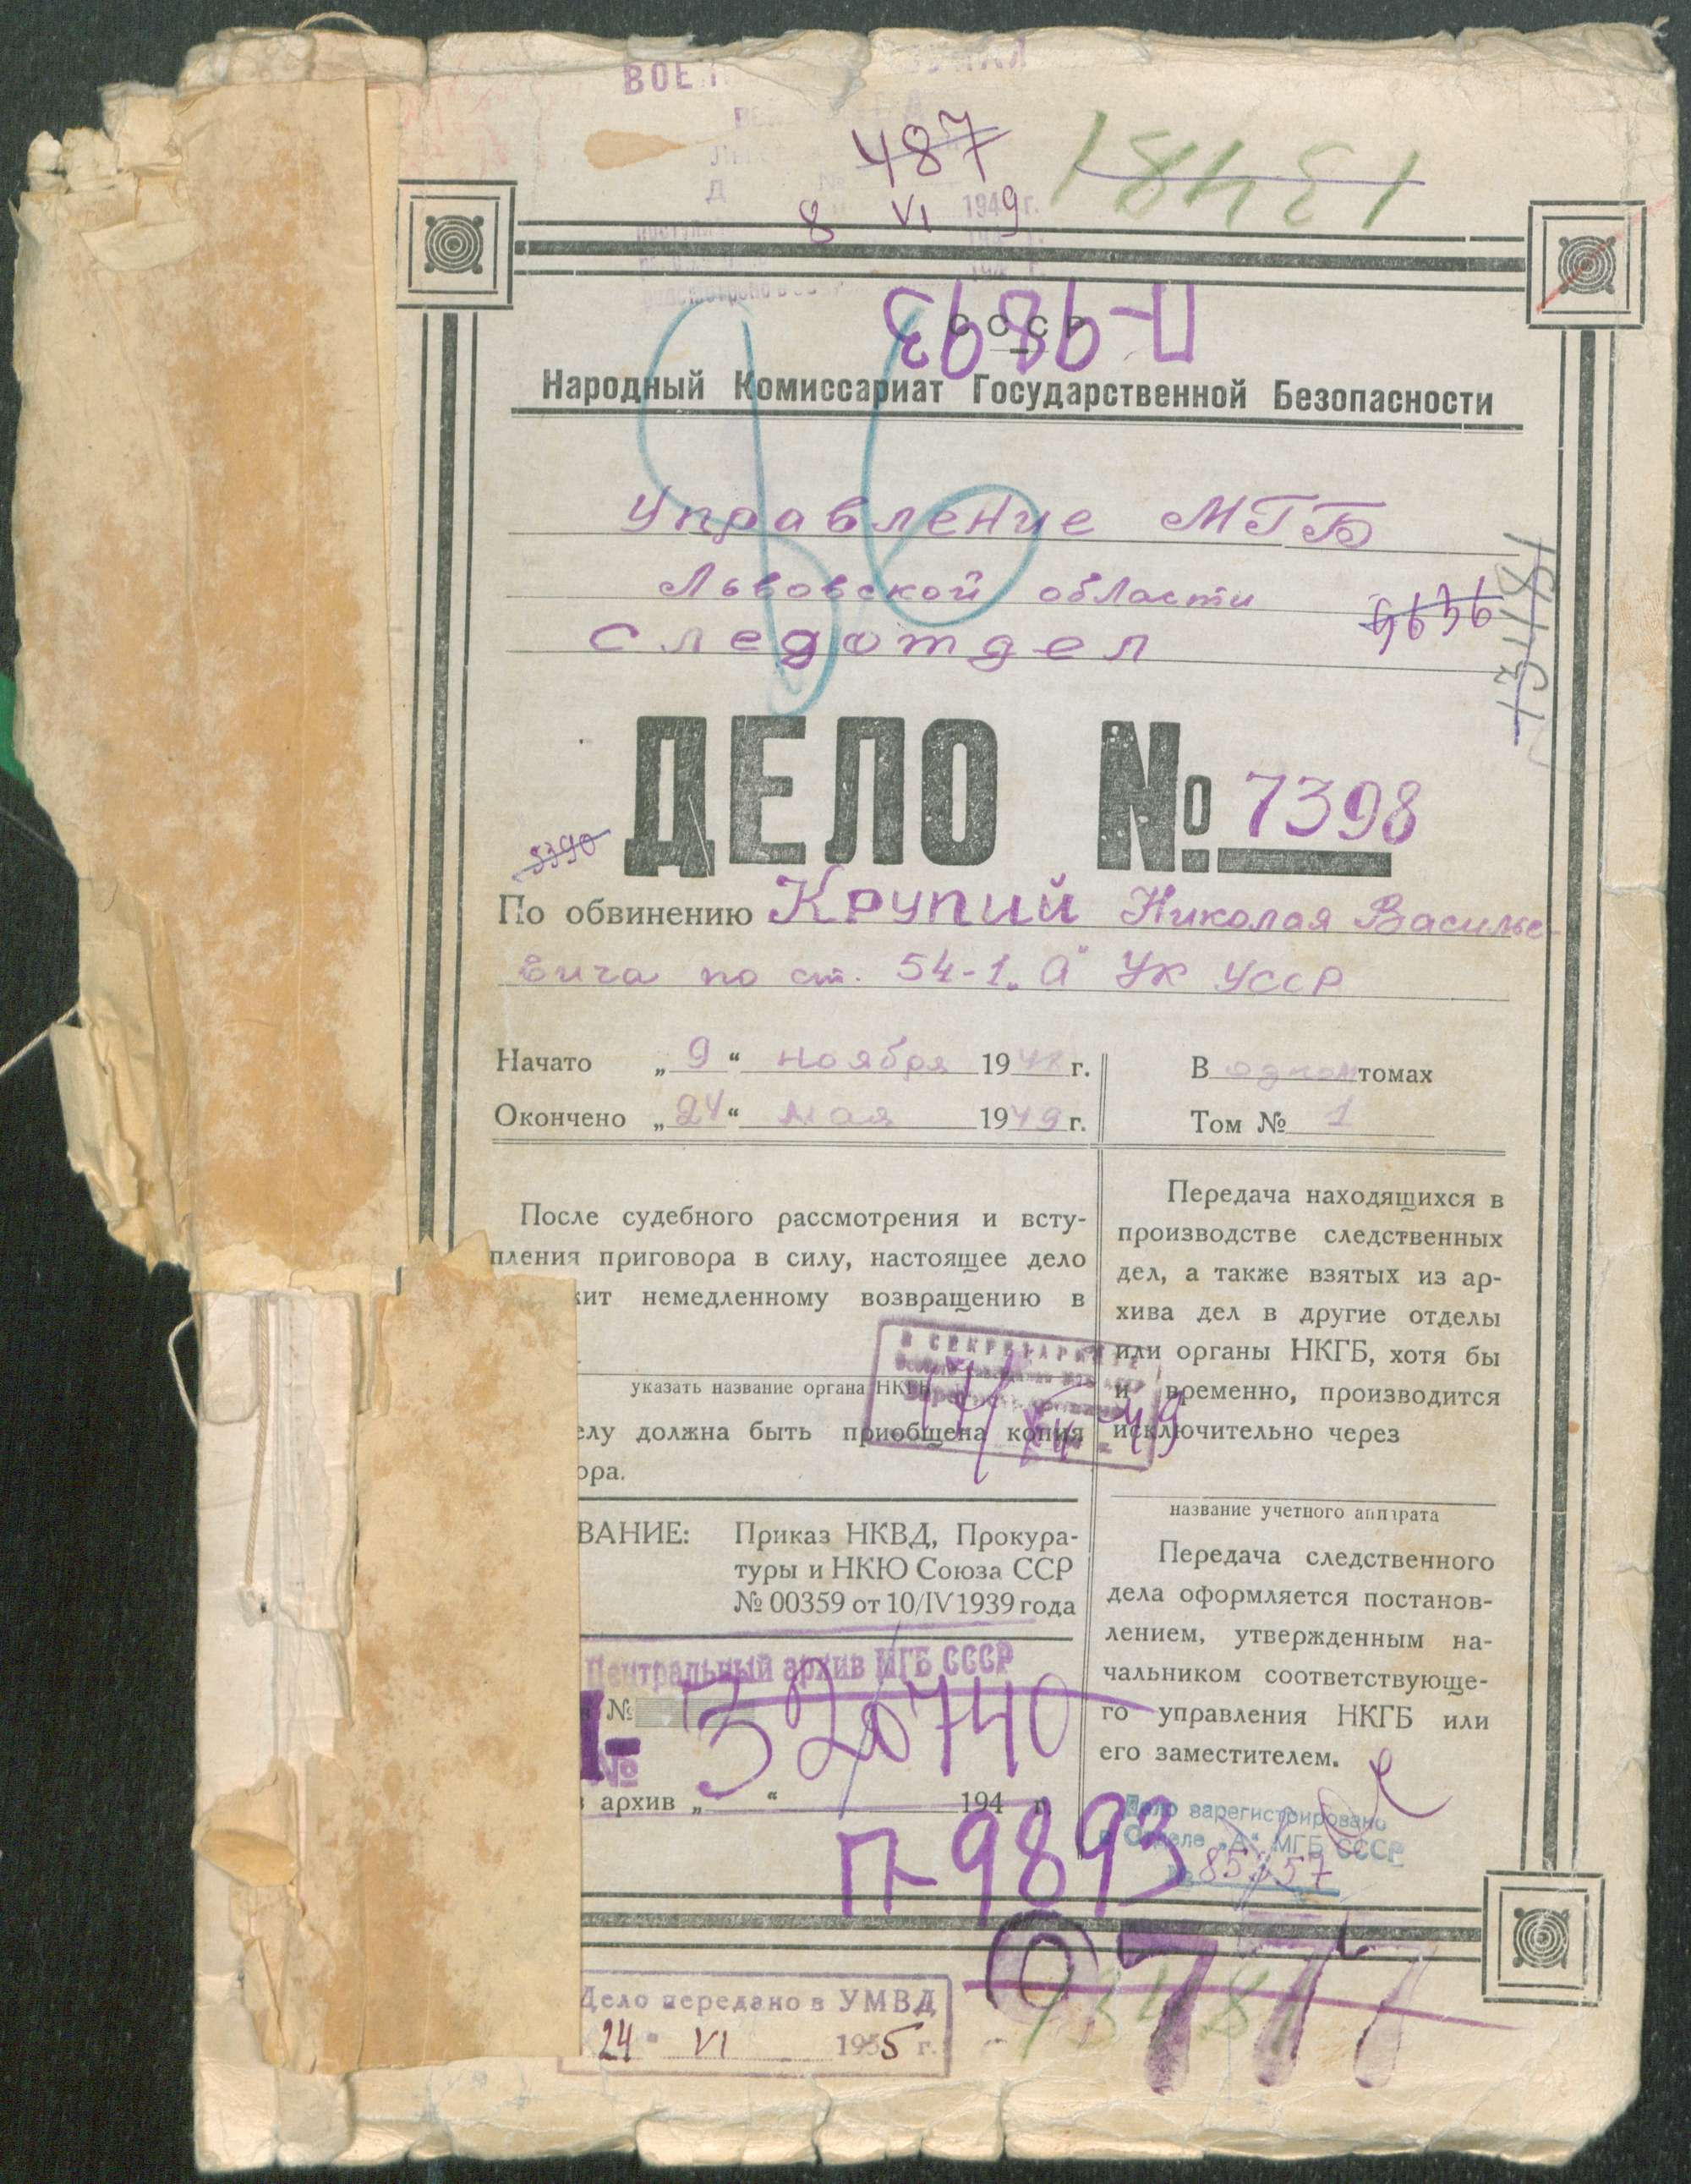 487
13481
8 VI 1949 г.
СССР
П-9893
Народный Комиссариат Государственной Безопасности
Управление МГБ
Львовской области
Следотдел
ДЕЛО № 7398
5390
По обвинению Крупий Николая Василье-
вича по ст. 54-1 „а" УК УССР
Начато „9“ ноября 1948 г.
Окончено „24“ мая 1949 г.
В одном томах
Том № 1
После судебного рассмотрения и всту-
пления приговора в силу, настоящее дело
жит немедленному возвращению в
указать название органа НКГБ
елу должна быть приобщена копия
ора.
ВАНИЕ: Приказ НКВД, Прокура-
туры и НКЮ Союза ССР
№ 00359 от 10/IV 1939 года
Передача находящихся в
производстве следственных
дел, а также взятых из ар-
хива дел в другие отделы
или органы НКГБ, хотя бы
и временно, производится
исключительно через
название учетного аппарата
Передача следственного
дела оформляется постанов-
лением, утвержденным на-
чальником соответствующе-
го управления НКГБ или
его заместителем.
В СЕКРЕТАРИАТЕ
Центральный архив МГБ СССР
№ 320740
№
архив „ “ 194 г.
П-9893
Дело зарегистрировано
в Отделе „А“ МГБ СССР
0777
13481
Дело передано в УМВД
24 " VI 1955 г.